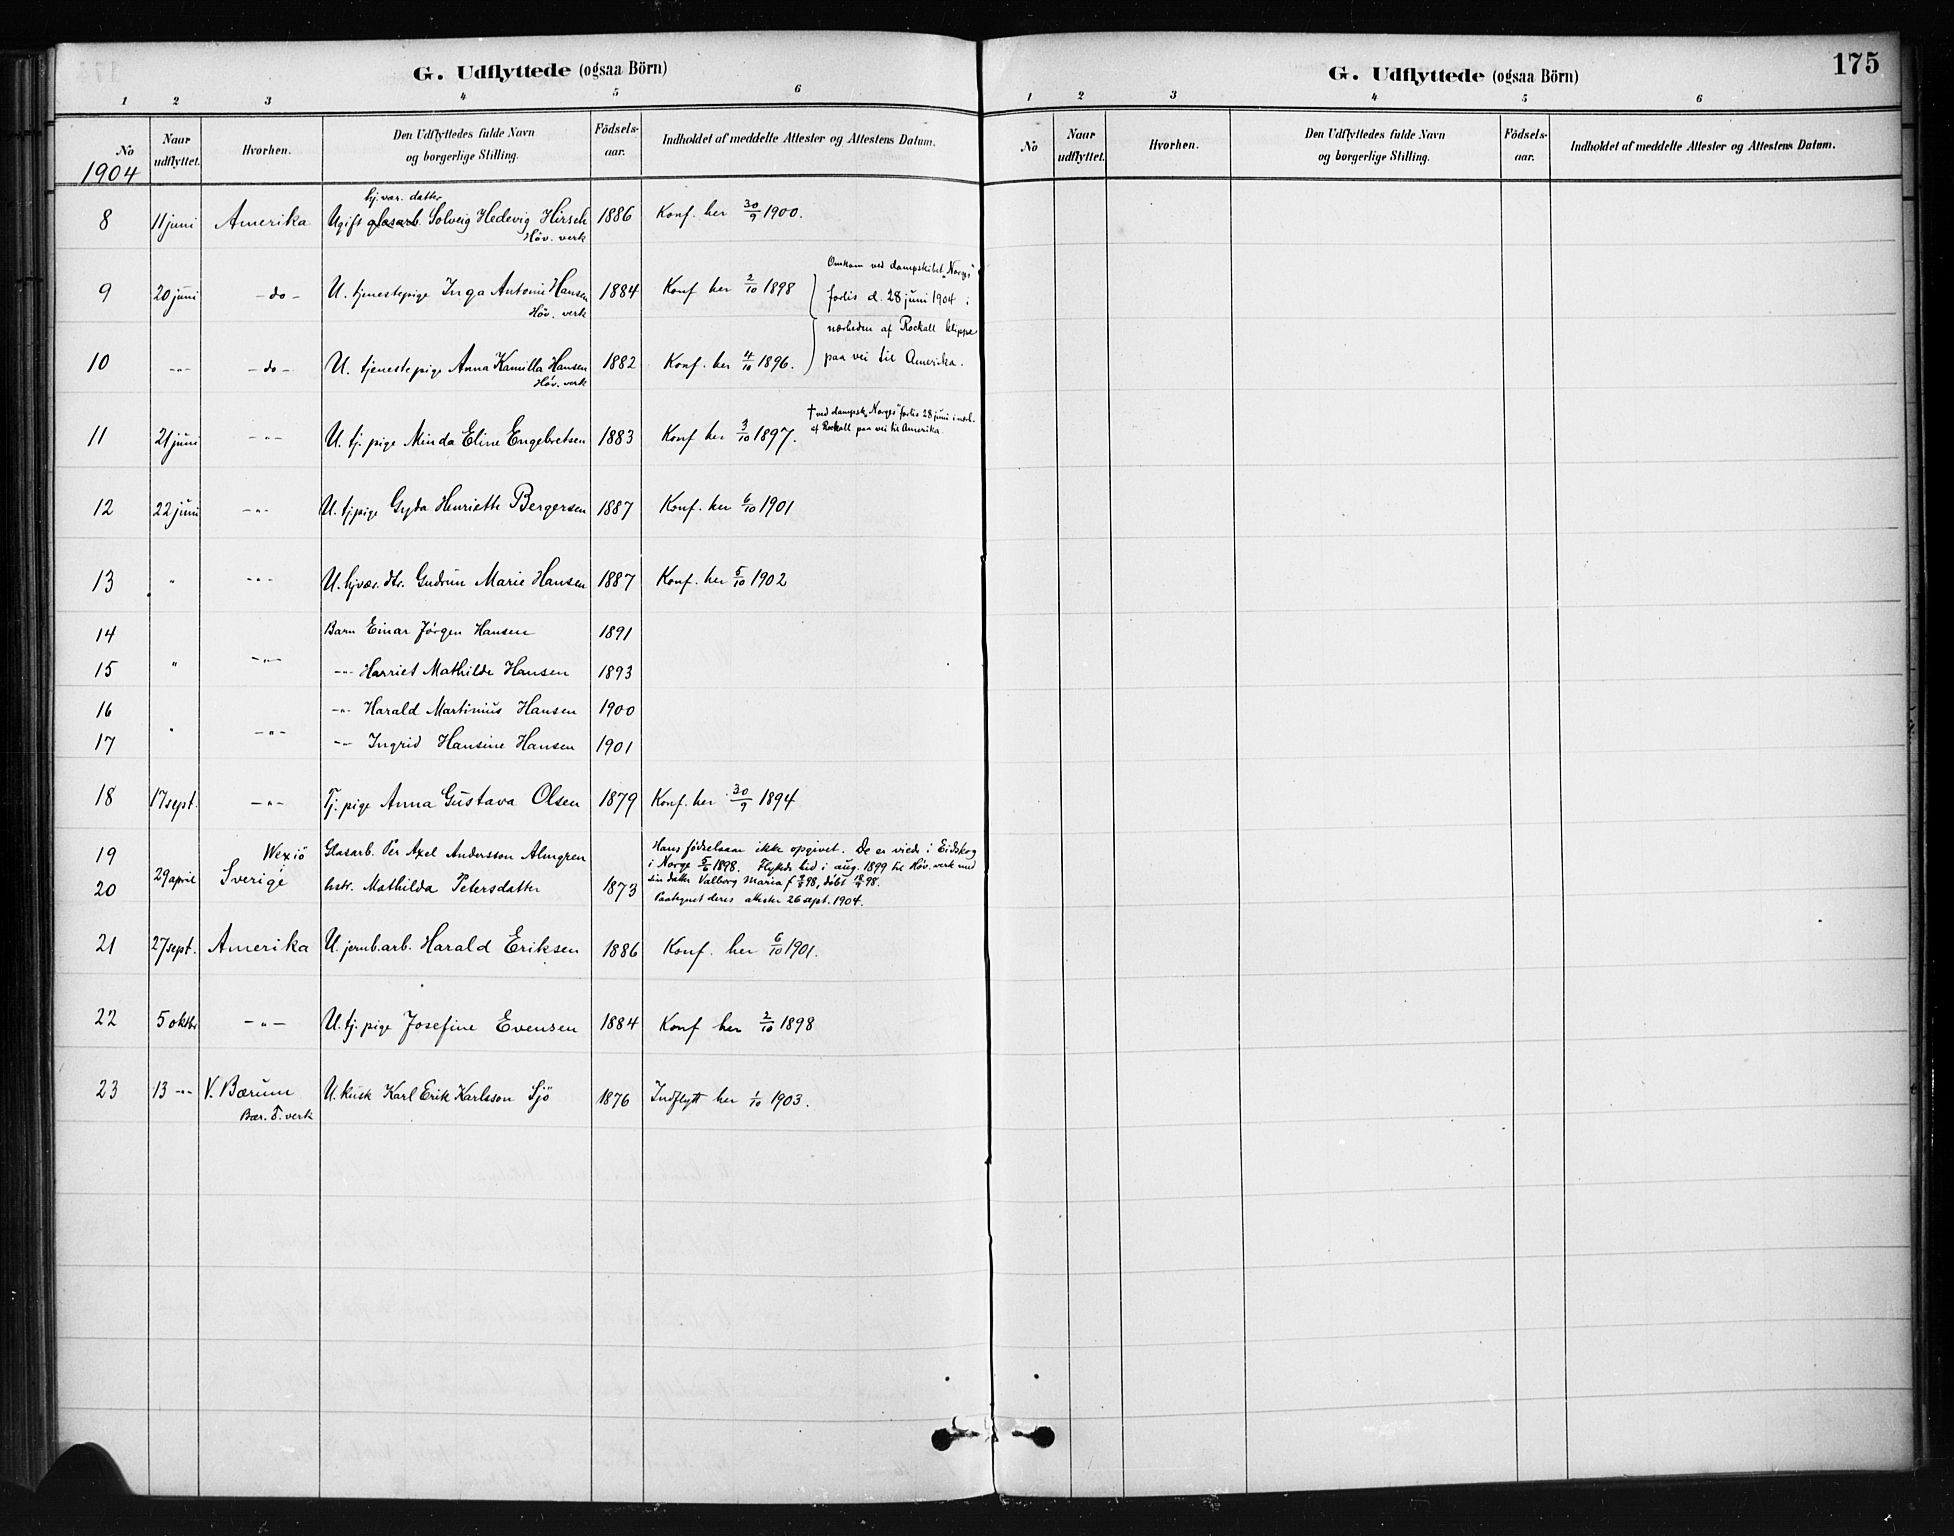 G. Udflyttede (ogsaa Börn)
1 2 3 4 5 6
No Naar udflyttet. Hvorhen. Den Udflyttedes fulde Navn og borgerlige Stilling. Födsels-aar. Indholdet af meddelte Attester og Attestens Datum.
1904
hj.vær. datter
8 11 juni Amerika Ugift glasarb. Solveig Hedevig Hirsch 1886 Konf. her 30/9 1900.
Höv. verk
9 20 juni -do- U. tjenestepige Inga Antonie Hansen 1884 Konf her 2/10 1898
Höv. verk
Omkom ved dampskibet "Norges"
forlis d. 28 juni 1904 i
nærheden af Rockall klippe
paa vei til Amerika.
10 -"- -do- U. tjenestepige Anna Kamilla Hansen 1882 Konf. her 4/10 1896.
Höv. verk
11 21 juni -"- U. tj. pige Minda Eline Engebretsen 1883 Konf her 3/10 1897.
† ved dampsk. "Norges" forlis 28 juni i nærh.
af Rockall paa vei til Amerika.
12 22 juni -"- U. tj pige Gyda Henriette Bergersen 1887 Konf. her 6/10 1901
13 " -"- U. hjvær. dtr. Gudrun Marie Hansen 1887 Konf. her 5/10 1902
14 Barn Einar Jörgen Hansen 1891
15 " -"- -"- Harriet Mathilde Hansen 1893
16 -"- Harald Martinius Hansen 1900
17 " -"- -"- Ingrid Hansine Hansen 1901
18 17 sept. -"- Tj. pige Anna Gustava Olsen 1879 Konf. her 30/9 1894
19 Wexiö Glasarb. Per Axel Andersson Almgren
20 29 april Sverige hstr. Mathilda Petersdatter 1873
Hans födselsaar ikke opgivet. De er viede i Eidskog
i Norge 5/6 1898. Flyttede hid i aug. 1899 til Höv. verk med
sin datter Valborg Maria
Paategnet deres attester 26 sept. 1904.
21 27 sept. Amerika U. jernb.arb. Harald Eriksen 1886 Konf. her 6/10 1901.
22 5 oktbr -"- U. tj. pige Josefine Evensen 1884 Konf her 2/10 1898
23 13 -"- V. Bærum U. kusk Karl Erik Karlsson Sjö 1876 Indflytt her 1/10 1903.
Bær. verk
175
G. Udflyttede (ogsaa Börn)
1 2 3 4 5 6
No Naar udflyttet. Hvorhen. Den Udflyttedes fulde Navn og borgerlige Stilling. Födsels-aar. Indholdet af meddelte Attester og Attestens Datum.